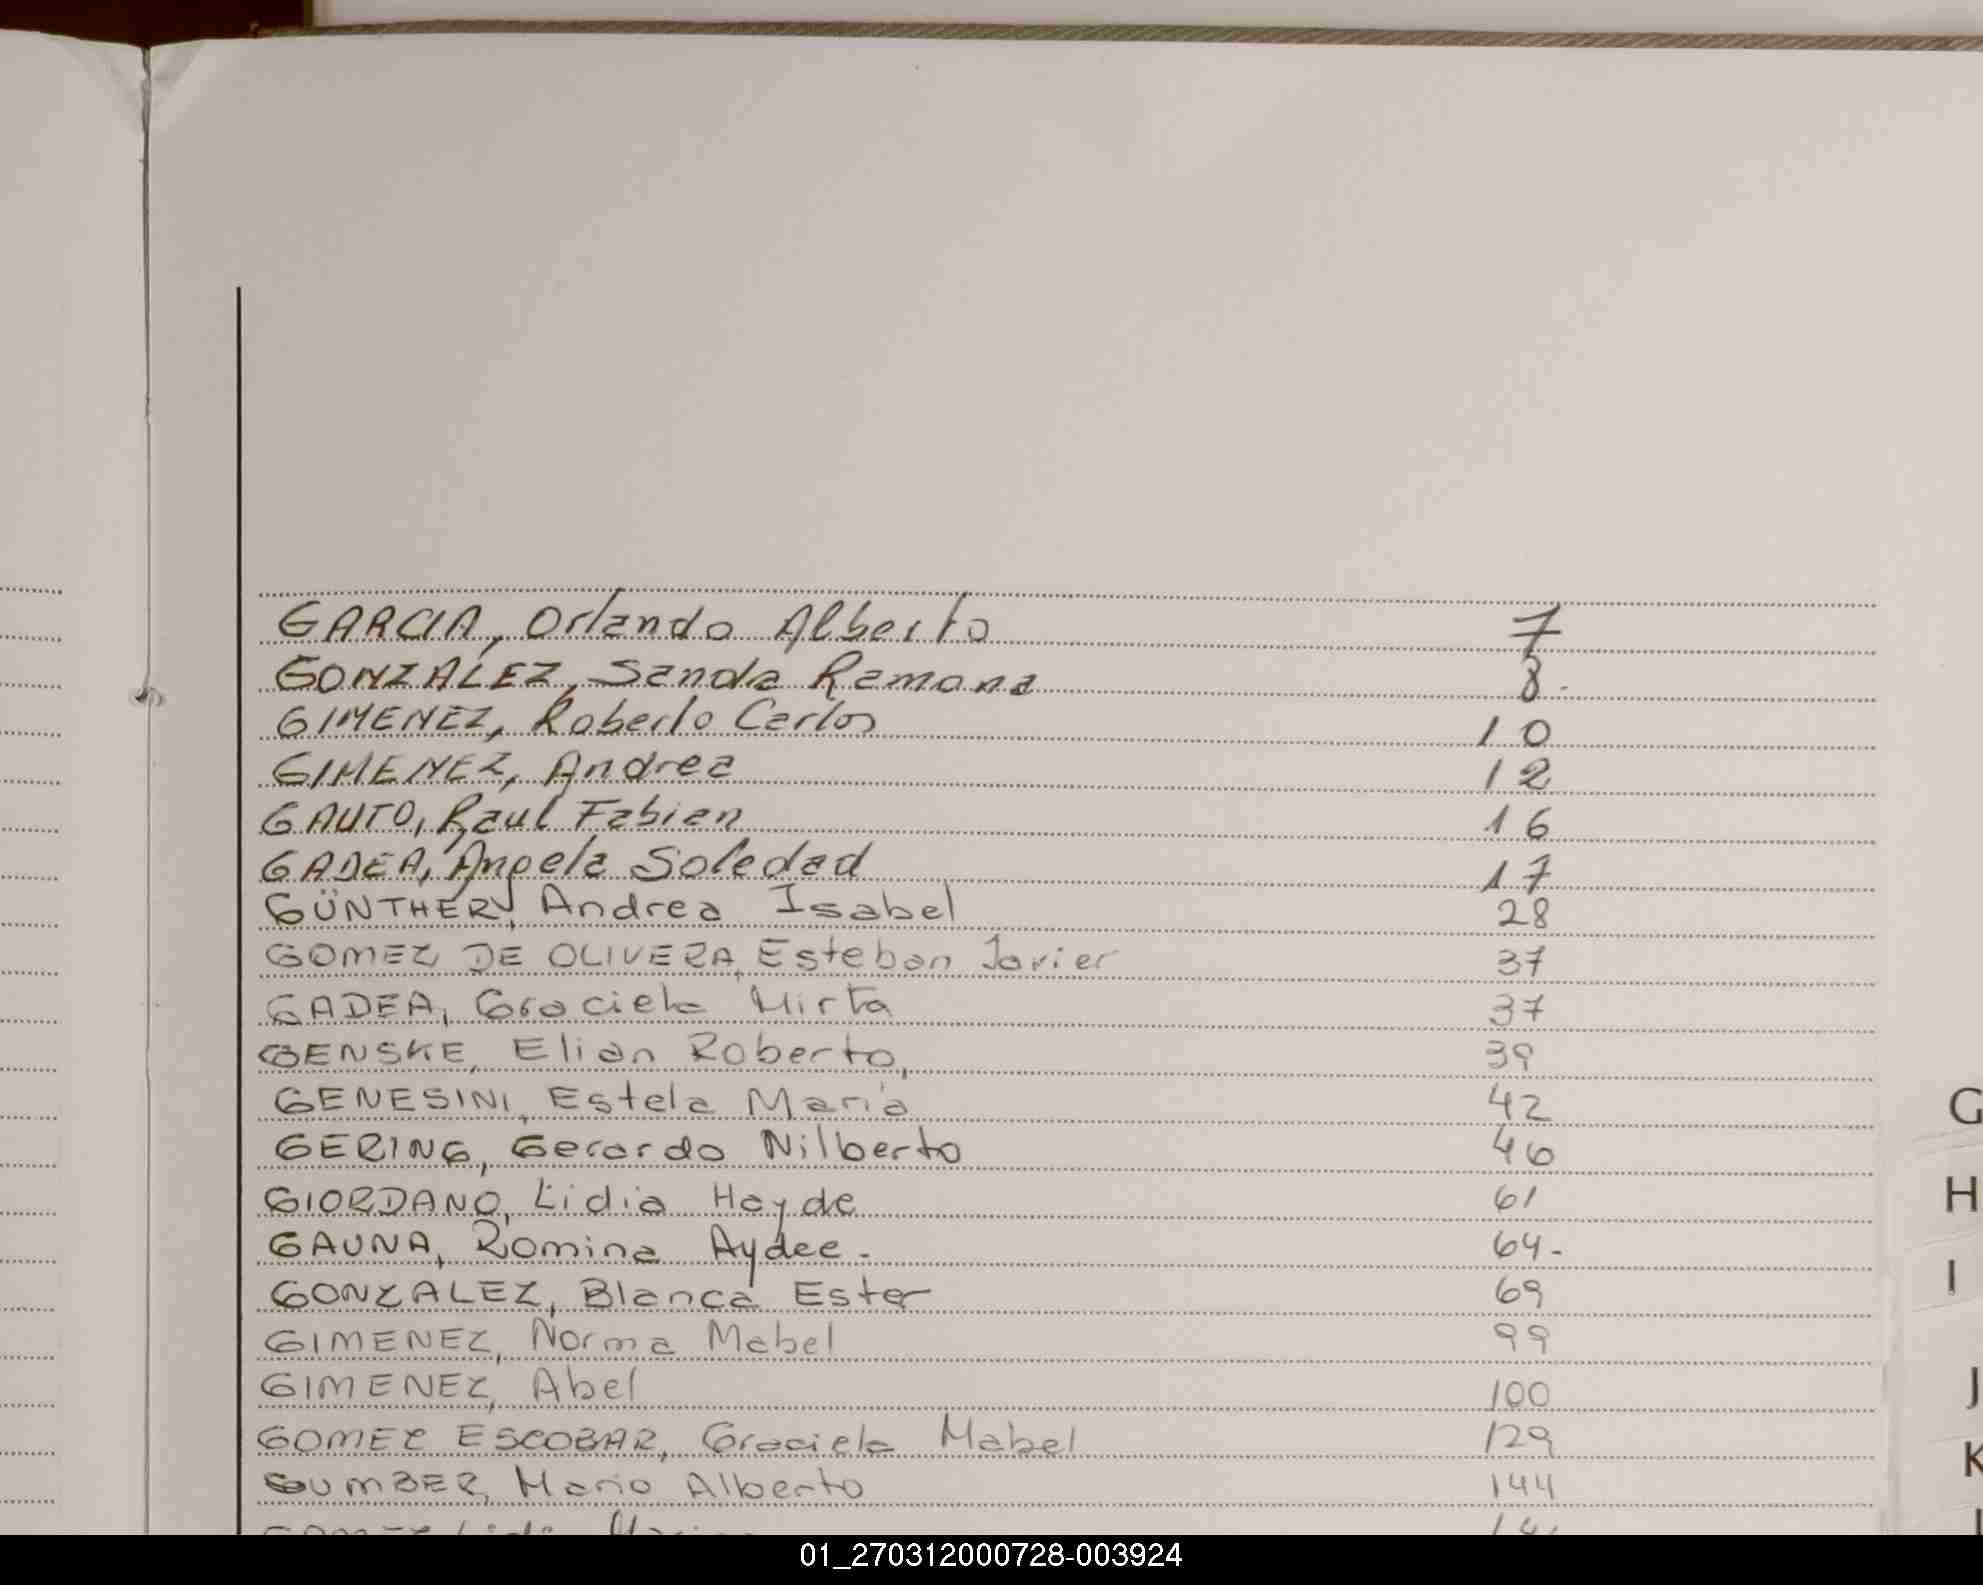 GARCIA, Orlando Alberto 7
GONZALEZ, Sanda Ramona 8.
GIMENEZ, Roberto Carlos 10
GIMENEZ, Andrea 12
GAUTO, Raul Fabian 16
GADEA, Angela Soledad 17
GÜNTHER, Andrea Isabel 28
GOMEZ DE OLIVERA, Esteban Javier 37
GADEA, Graciela Mirta 37
GENSKE, Elian Roberto, 39
GENESINI, Estela María 42
GERING, Gerardo Nilberto 46
GIORDANO, Lidia Hayde 61
GAUNA, Romina Aydee. 64.
GONZALEZ, Blanca Ester 69
GIMENEZ, Norma Mabel 99
GIMENEZ, Abel 100
GOMEZ ESCOBAR, Graciela Mabel 129
GUMBER, Mario Alberto 144
G
H
I
J
K
01_270312000728-003924